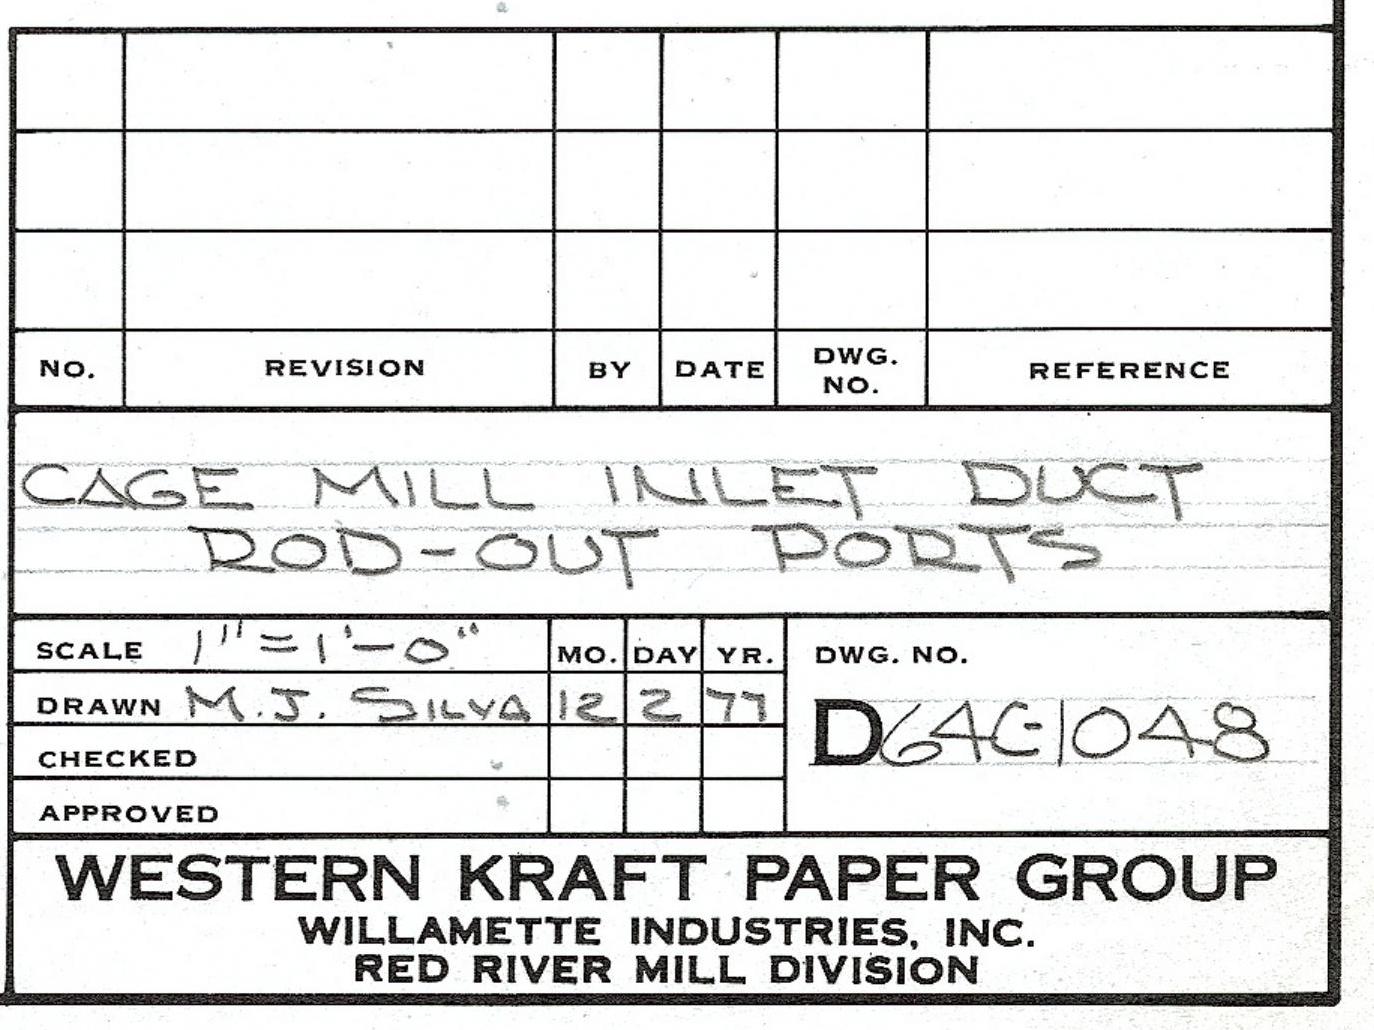 NO. REVISION BY DATE DWG. NO. REFERENCE
CAGE MILL INLET DUCT
ROD-OUT PORTS
SCALE 1"=1'-0" MO. DAY YR. DWG. NO.
DRAWN M.J. SILVA 12 2 77
CHECKED
APPROVED
WESTERN KRAFT PAPER GROUP
WILLAMETTE INDUSTRIES, INC.
RED RIVER MILL DIVISION